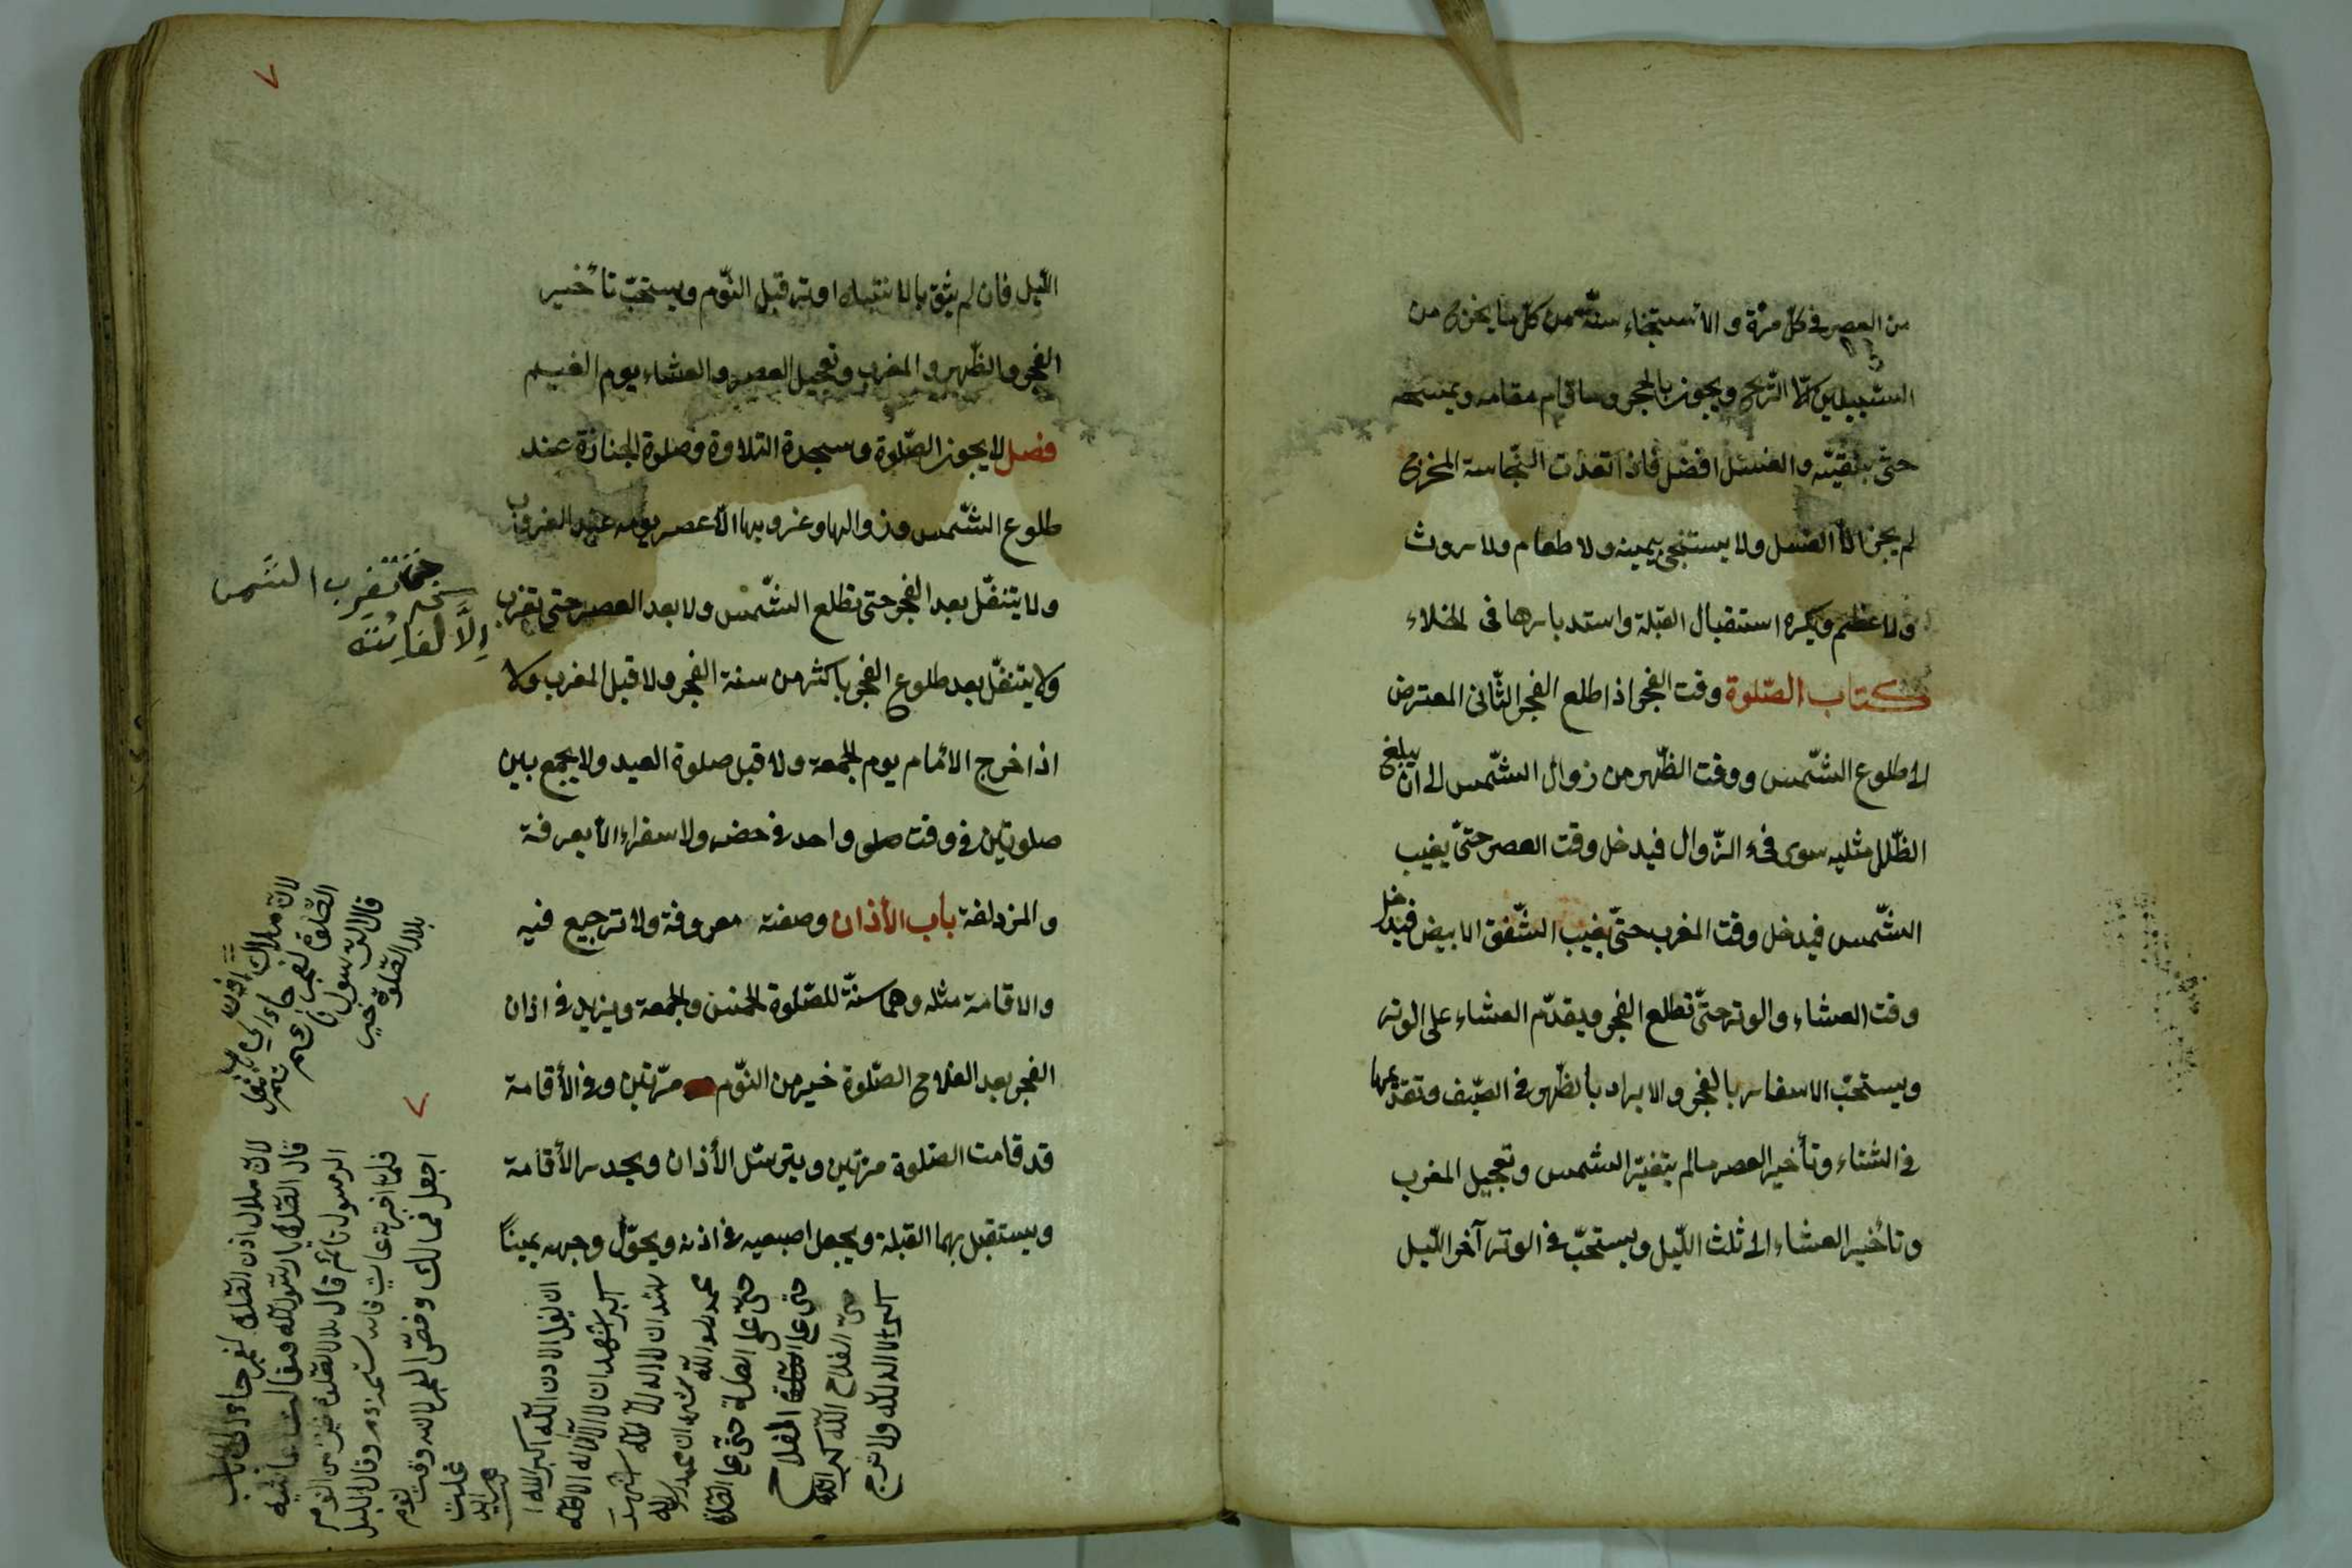 من العصر في كل مرّة والاستنجاء سنّة من كل ما يخرج من
السّبيلين الّا الرّيح ويجوز بالحجر وما قام مقامه ويمسحه
حتّى ينقيّه والغسل افضل فاذا تعدّت النّجاسة المخرج
لم يجز الّا الغسل ولا يستنجى بيمينه ولا طعام ولا روث
ولا عظم ويكره استقبال القبلة واستدبارها فى الخلاء
كتاب الصّلوة وقت الفجر اذا طلع الفجر الثّانى المعترض
الى طلوع الشّمس ووقت الظّهر من زوال الشّمس الى ان يبلغ
الظّل مثليه سوى فىء الزّوال فيدخل وقت العصر حتّى يغيب
الشّمس فيدخل وقت المغرب حتّى يغيب الشّفق الابيض فيدخل
وقت العشاء والوتر حتّى تطلع الفجر ويقدّم العشاء على الوتر
ويستحبّ الاسفار بالفجر والابراد بالظّهر فى الصّيف وتقديمها
فى الشتاء وتأخير العصر ما لم يتغيّر الشمس وتعجيل المغرب
وتأخير العشاء الى ثلث اللّيل ويستحبّ فى الوتر آخر اللّيل
٧
اللّيل فان لم يثق بالانتباه اوتر قبل النّوم ويستحبّ تأخير
الفجر والظّهر والمغرب وتعجيل العصر والعشاء يوم الغيم
فصل لا يجوز الصّلوة وسجدة التلاوة وصلوة الجنازة عند
طلوع الشّمس وزوالها وغروبها الّا عصر يومه عند الغروب
ولا يتنفّل بعد الفجر حتى تطلع الشّمس ولا بعد العصر حتى تغرب
ولا يتنفّل بعد طلوع الفجر باكثر من سنة الفجر ولا قبل المغرب ولا
اذا خرج الامام يوم الجمعة ولا قبل صلوة العيد ولا يجمع بين
صلوتين فى وقت صلى واحد فى حضر ولا سفر الا بعرفة
والمزدلفة باب الأذان وصفته معروفة ولا ترجيع فيه
والاقامة مثله وهما سنّة للصّلوة الخمس والجمعة ويزيد فى اذان
الفجر بعد الفلاح الصّلوة خير من النّوم مرّتين وفى الأقامة
قد قامت الصّلوة مرّتين ويترسّل الأذان ويحدر الأقامة
ويستقبل بهما القبلة ويجعل اصبعيه فى اذنه ويحوّل وجهه يمينًا
تغرب الشّمس
إلَّا لفائتة
قال الرسول
بلال الصّلوة خير
٧
لان بلال اذن الصّلوة لفجر
الرسول نائم قال بلال الصّلوة خير من النوم
الله اكبر الله
اكبر اشهد ان لا اله الا الله
اشهد ان لا اله الا الله اشهد
حىّ على الصلاة حىّ على الصلاة
حىّ على الفلاح
حىّ الفلاح الله اكبر الله
اكبر لا اله الا الله